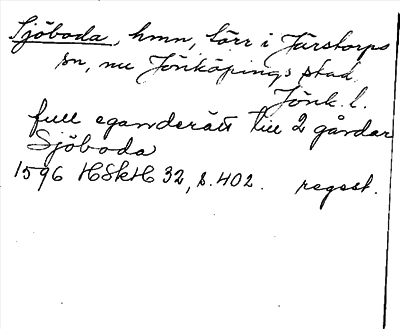 Sjöboda, hmn, törr i Järstorps
sn, nu Jönköpings stad
Jönk. l.
full eganderätt till 2 gårdar
Sjöboda
1596 HSkH 32, s. 402. regest.